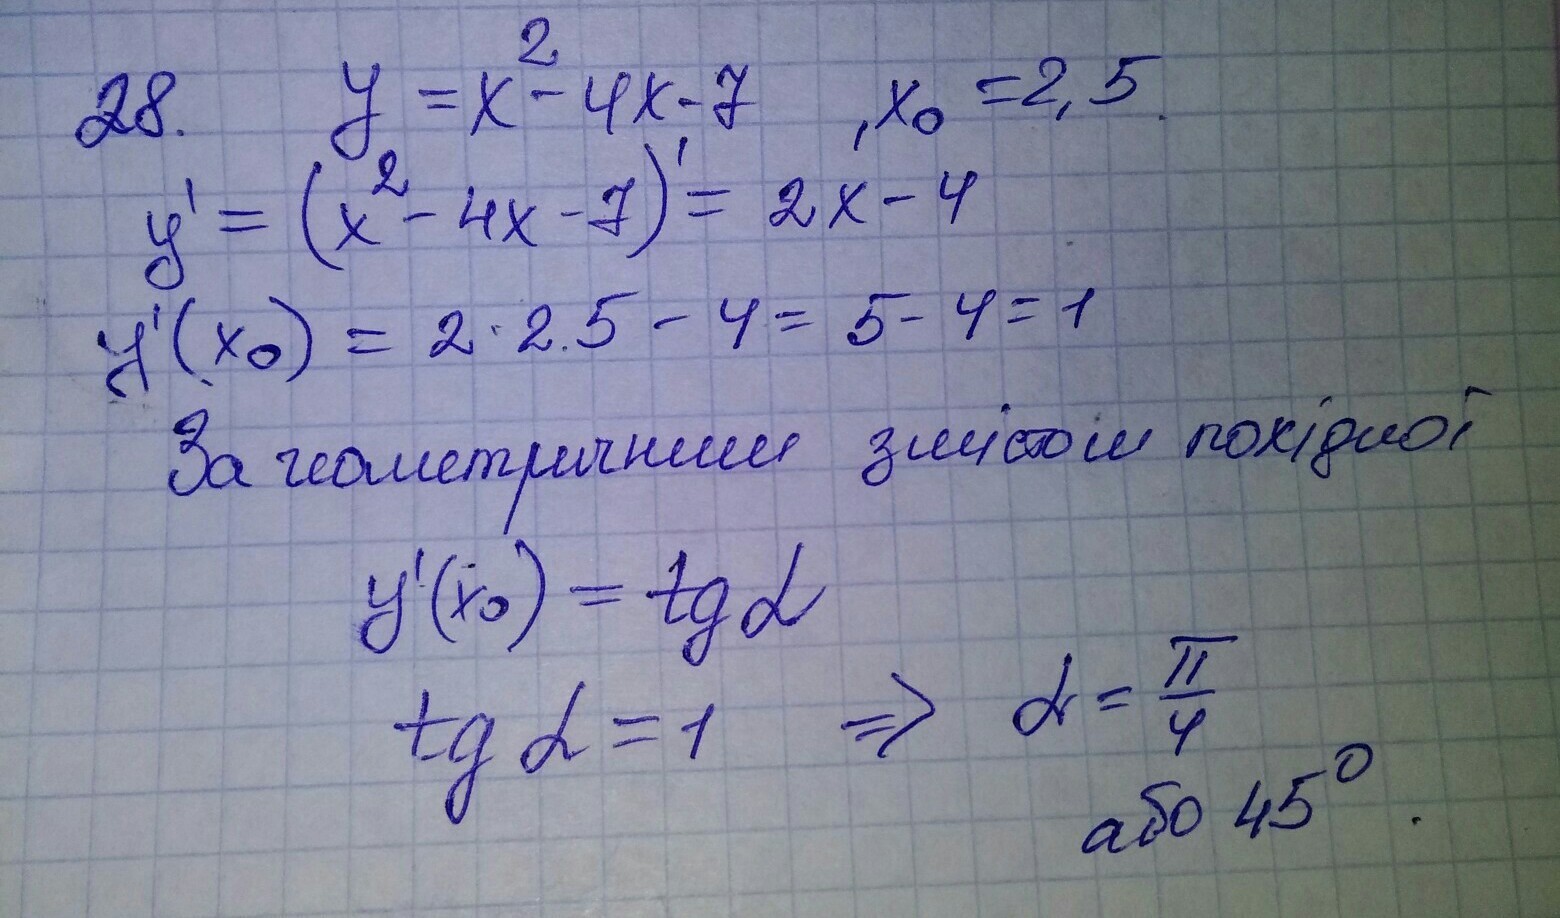 28. y = x² - 4x - 7 , x₀ = 2,5.
y' = (x² - 4x - 7)' = 2x - 4
y'(x₀) = 2 · 2.5 - 4 = 5 - 4 = 1
За геометричним змістом похідної
y'(x₀) = tg α
tg α = 1 ⇒ α = π/4
або 45⁰.